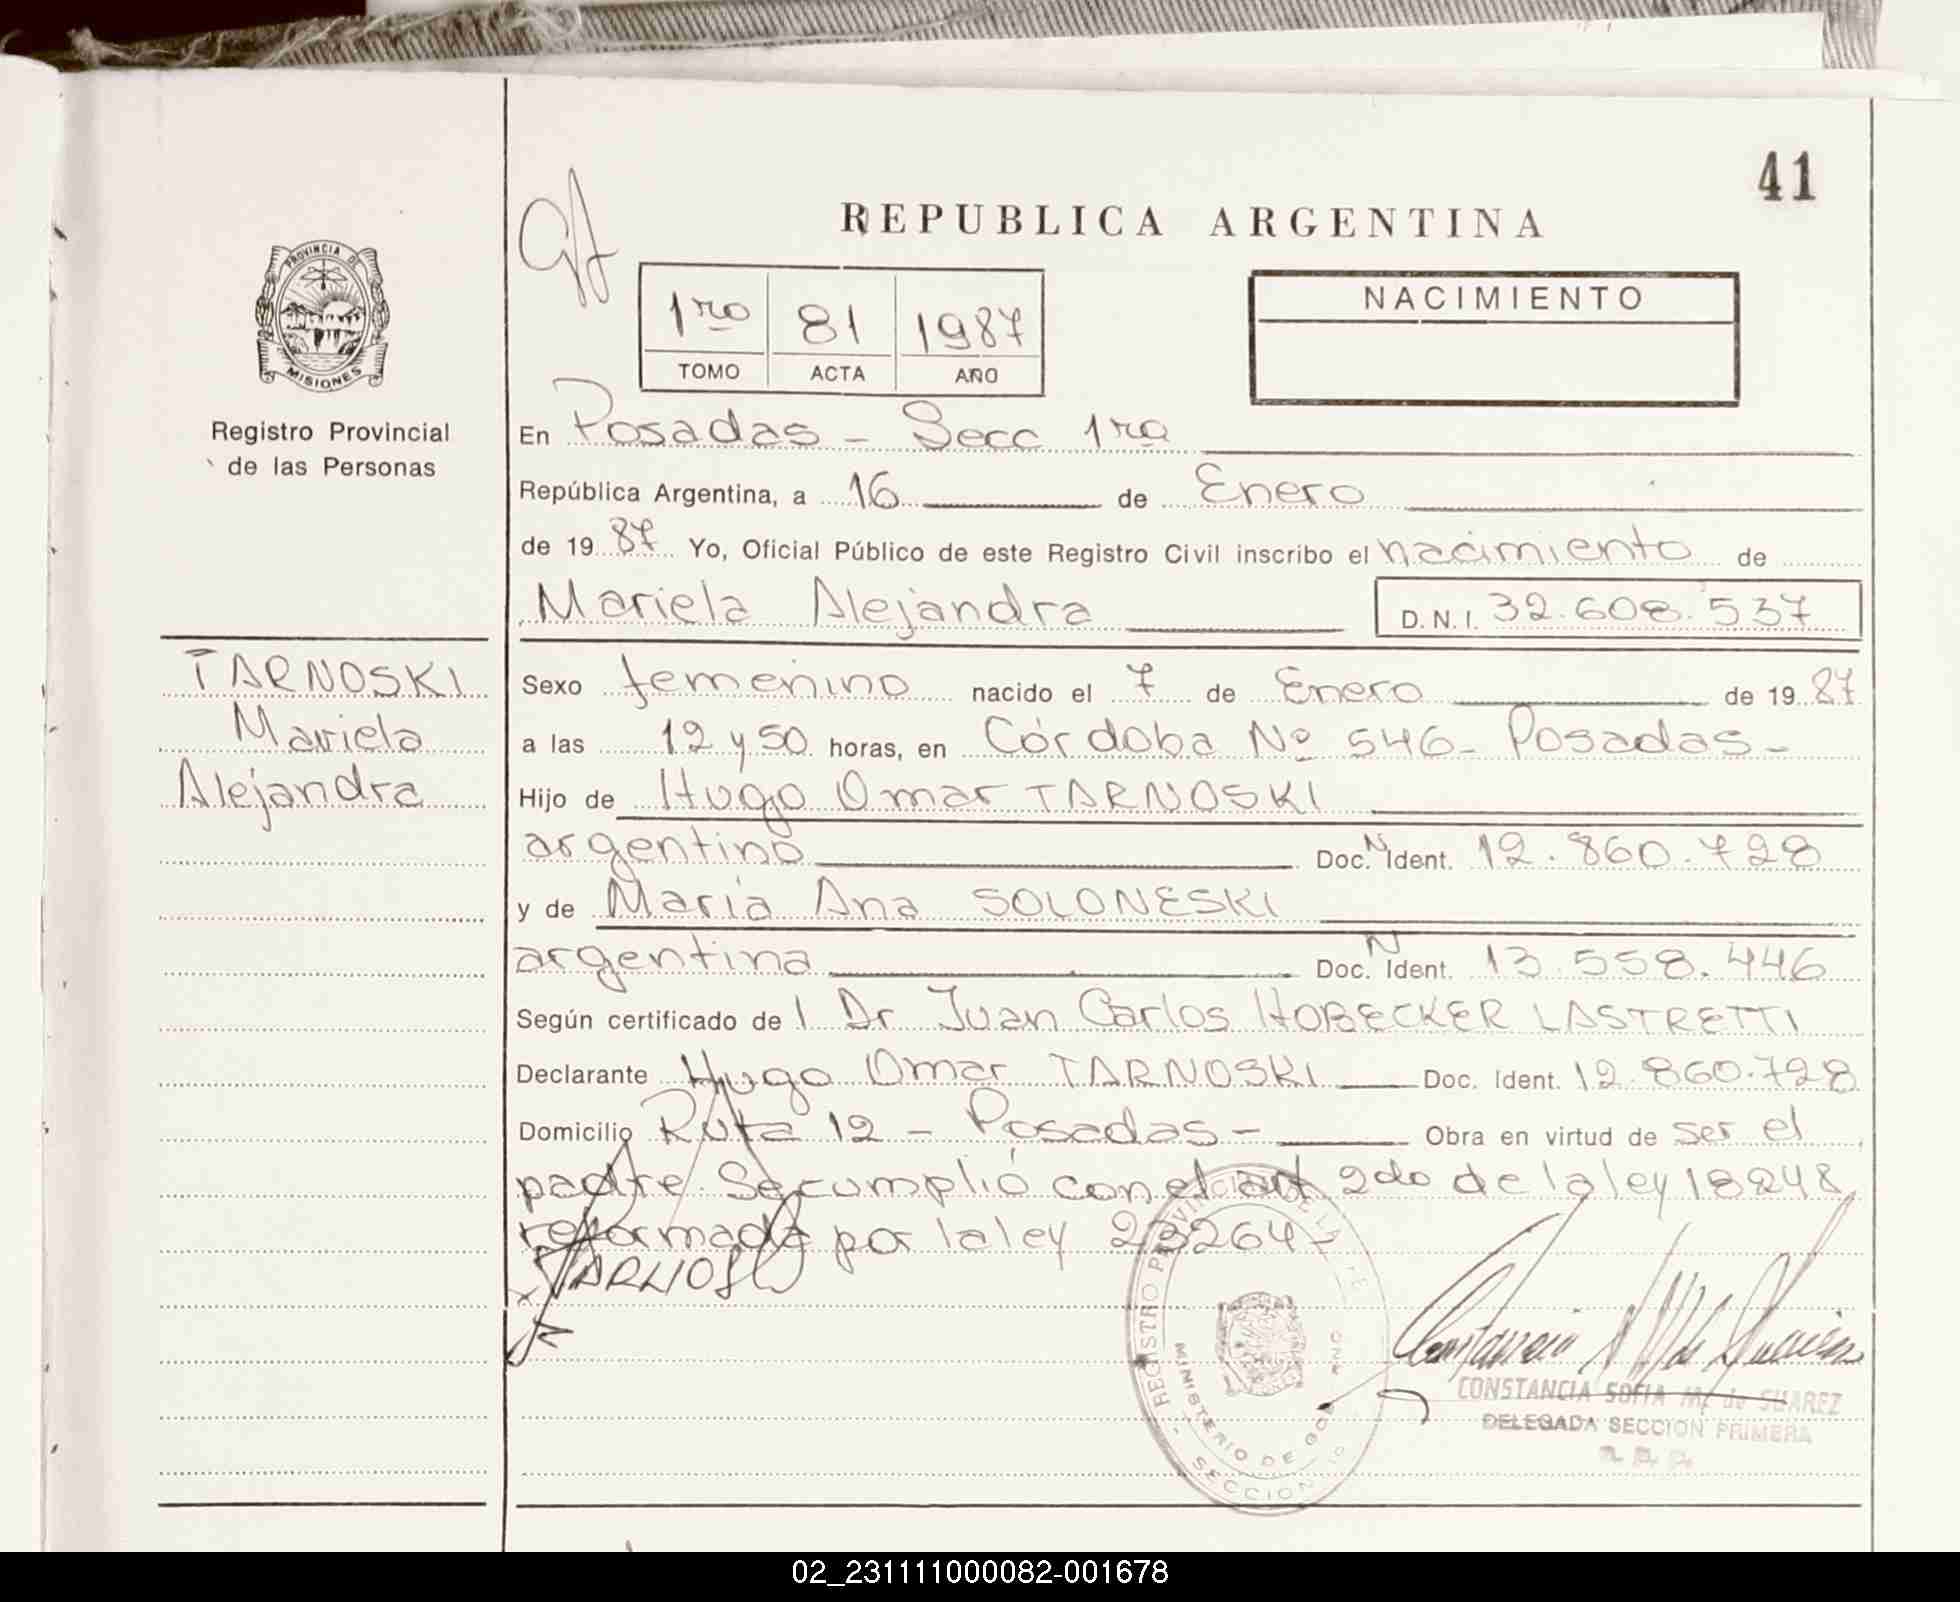 41
REPUBLICA ARGENTINA
PROVINCIA DE
MISIONES
Registro Provincial
de las Personas
1ro 81 1987
TOMO ACTA AÑO
NACIMIENTO
En Posadas - Secc 1ra
República Argentina, a 16 de Enero
de 1987 Yo, Oficial Público de este Registro Civil inscribo el nacimiento de
Mariela Alejandra D.N.I. 32.608.537
TARNOSKI
Mariela
Alejandra
Sexo femenino nacido el 7 de Enero de 1987
a las 12 y 50 horas, en Córdoba Nº 546- Posadas-
Hijo de Hugo Omar TARNOSKI
argentino Doc. N Ident. 12.860.728
y de María Ana SOLONESKI
argentina Doc. N Ident. 13.558.446
Según certificado de l Dr Juan Carlos HOBECKER LASTRETTI
Declarante Hugo Omar TARNOSKI Doc. Ident. 12.860.728
Domicilio Ruta 12 - Posadas - Obra en virtud de ser el
padre. Se cumplió con el art 2do de la ley 18248
reformada por la ley 23264-
REGISTRO PROVINCIAL DE LAS
MINISTERIO DE GOBIERNO
SECCION
CONSTANCIA SOFIA M. de SUAREZ
DELEGADA SECCION PRIMERA
02_231111000082-001678